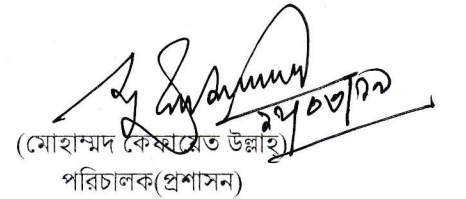 (মোহাম্মদ কেফায়েত উল্লাহ)
পরিচালক(প্রশাসন)